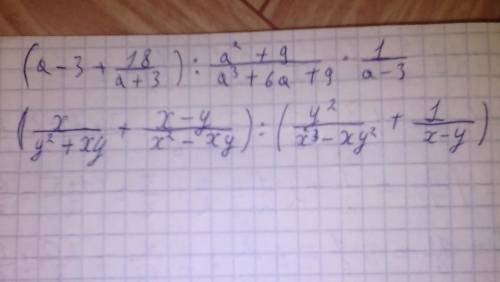 (a - 3 + 18/(a + 3)) : (a² + 9)/(a³ + 6a + 9) · 1/(a - 3)
(x/(y² + xy) + (x - y)/(x² - xy)) : (y²/(x³ - xy²) + 1/(x - y))